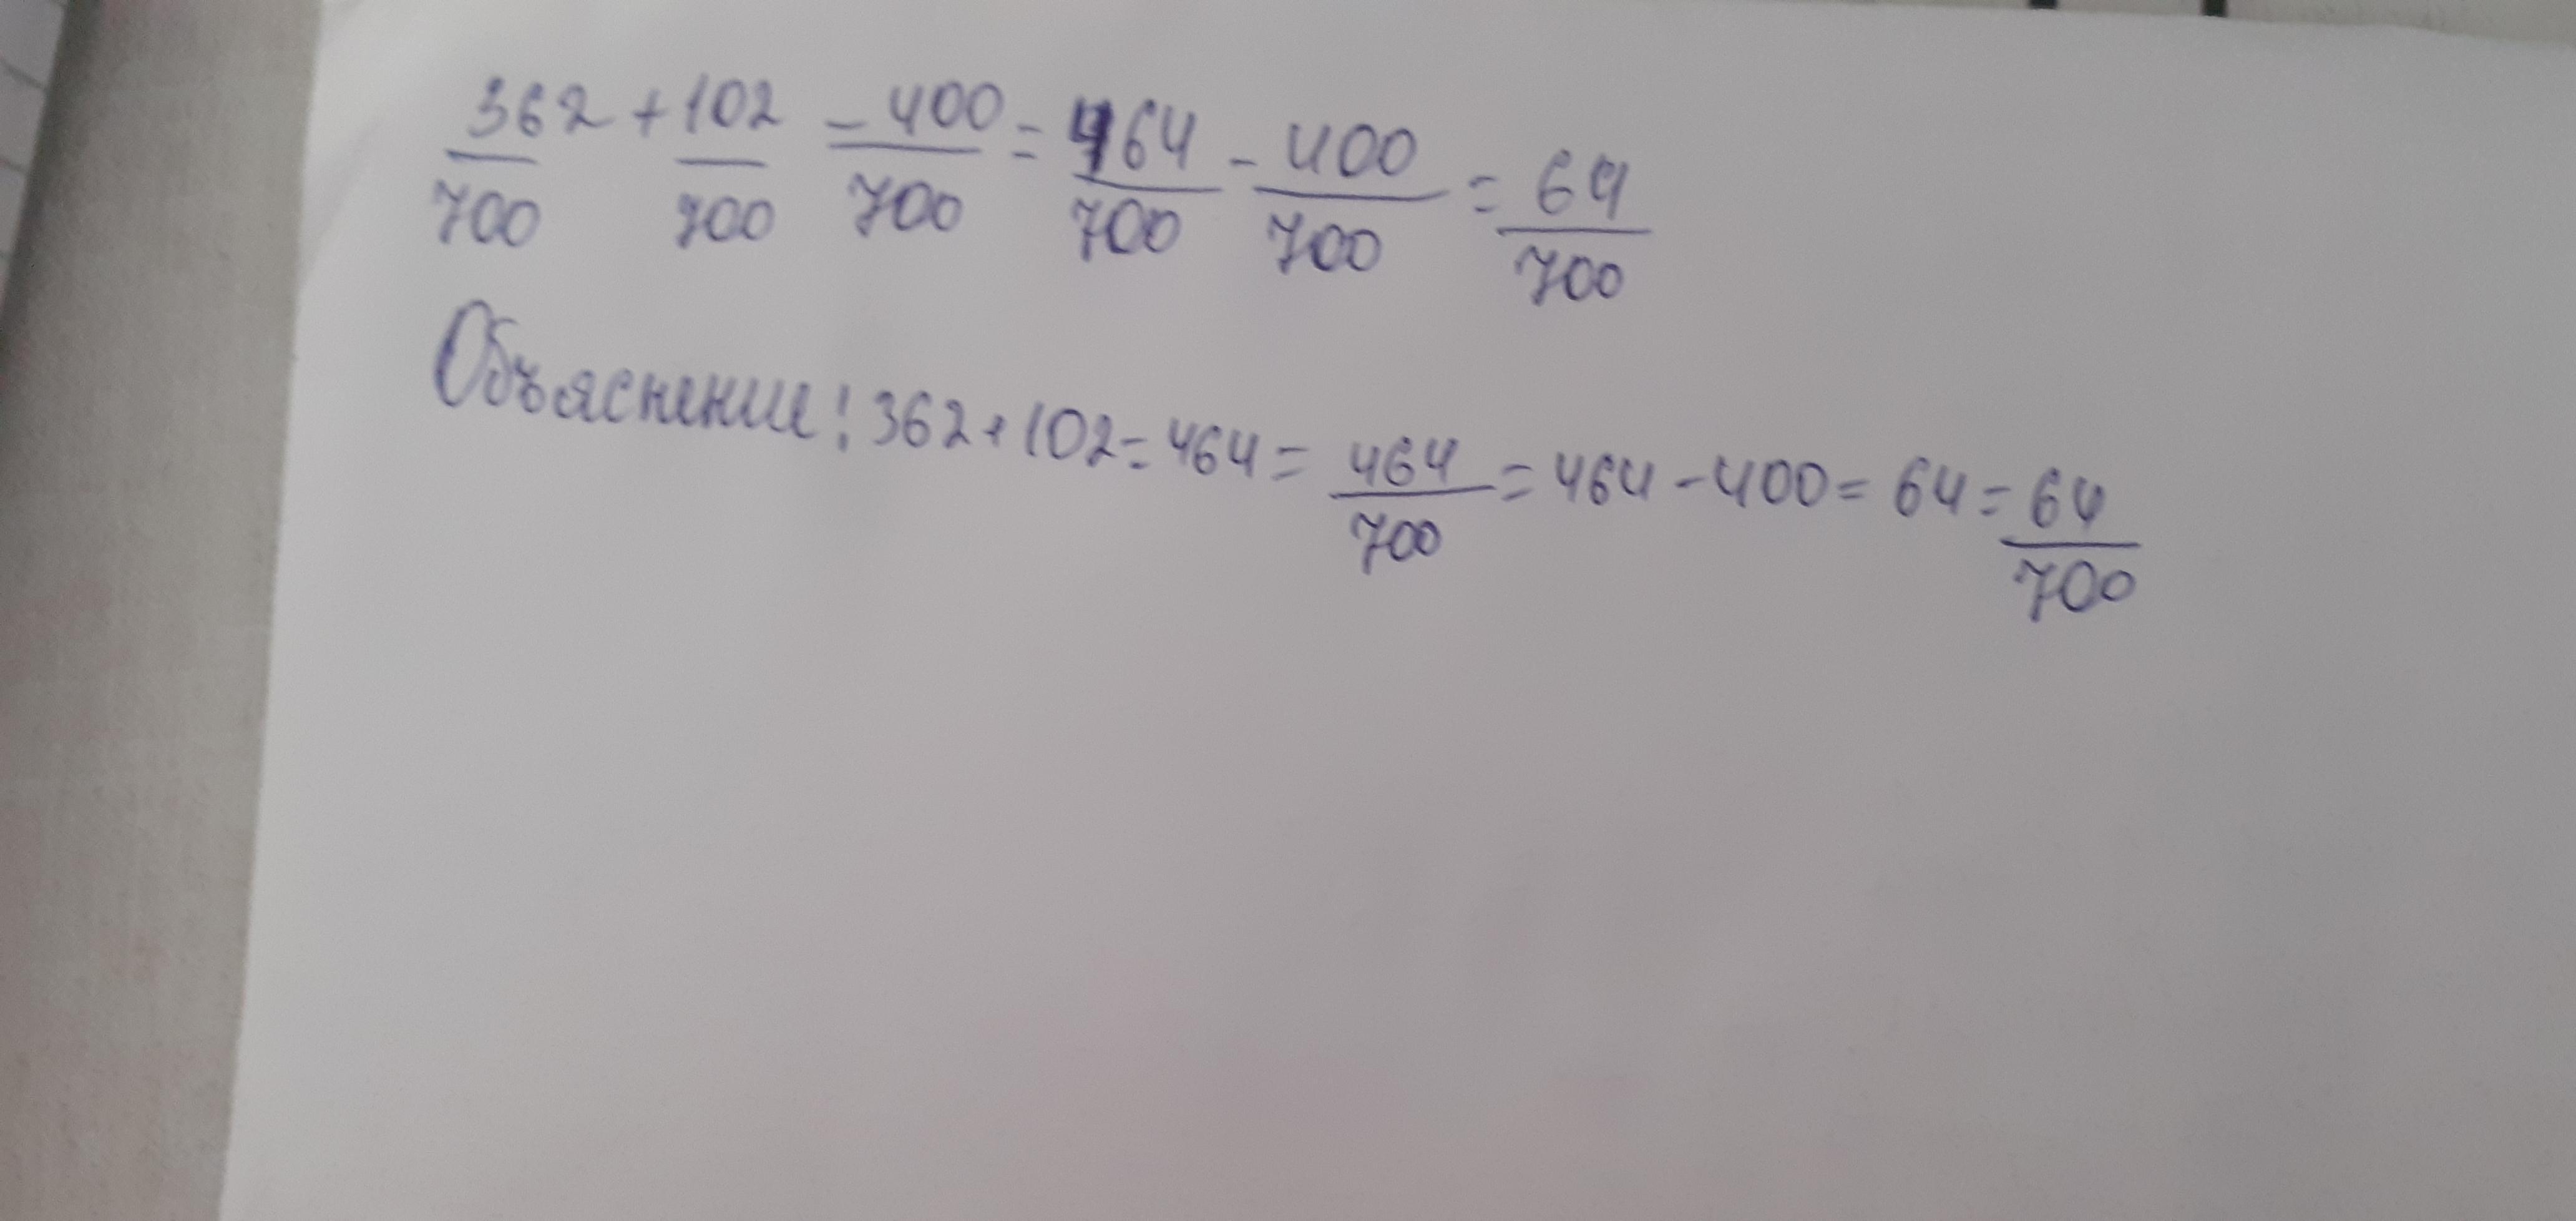 362/700 + 102/700 - 400/700 = 464/700 - 400/700 = 64/700
Объяснение! 362+102=464= 464/700 = 464-400= 64= 64/700